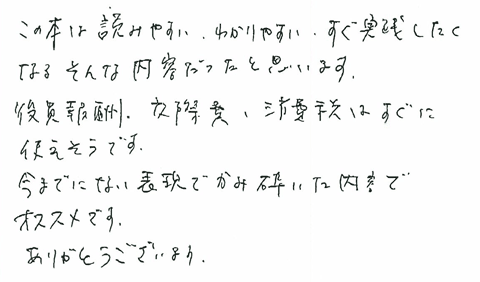 この本は読みやすい、わかりやすい、すぐ実践したく
なるそんな内容だったと思います。
役員報酬、交際費、消費税はすぐに
使えそうです。
今までにない表現でかみ砕いた内容で
オススメです。
ありがとうございます。